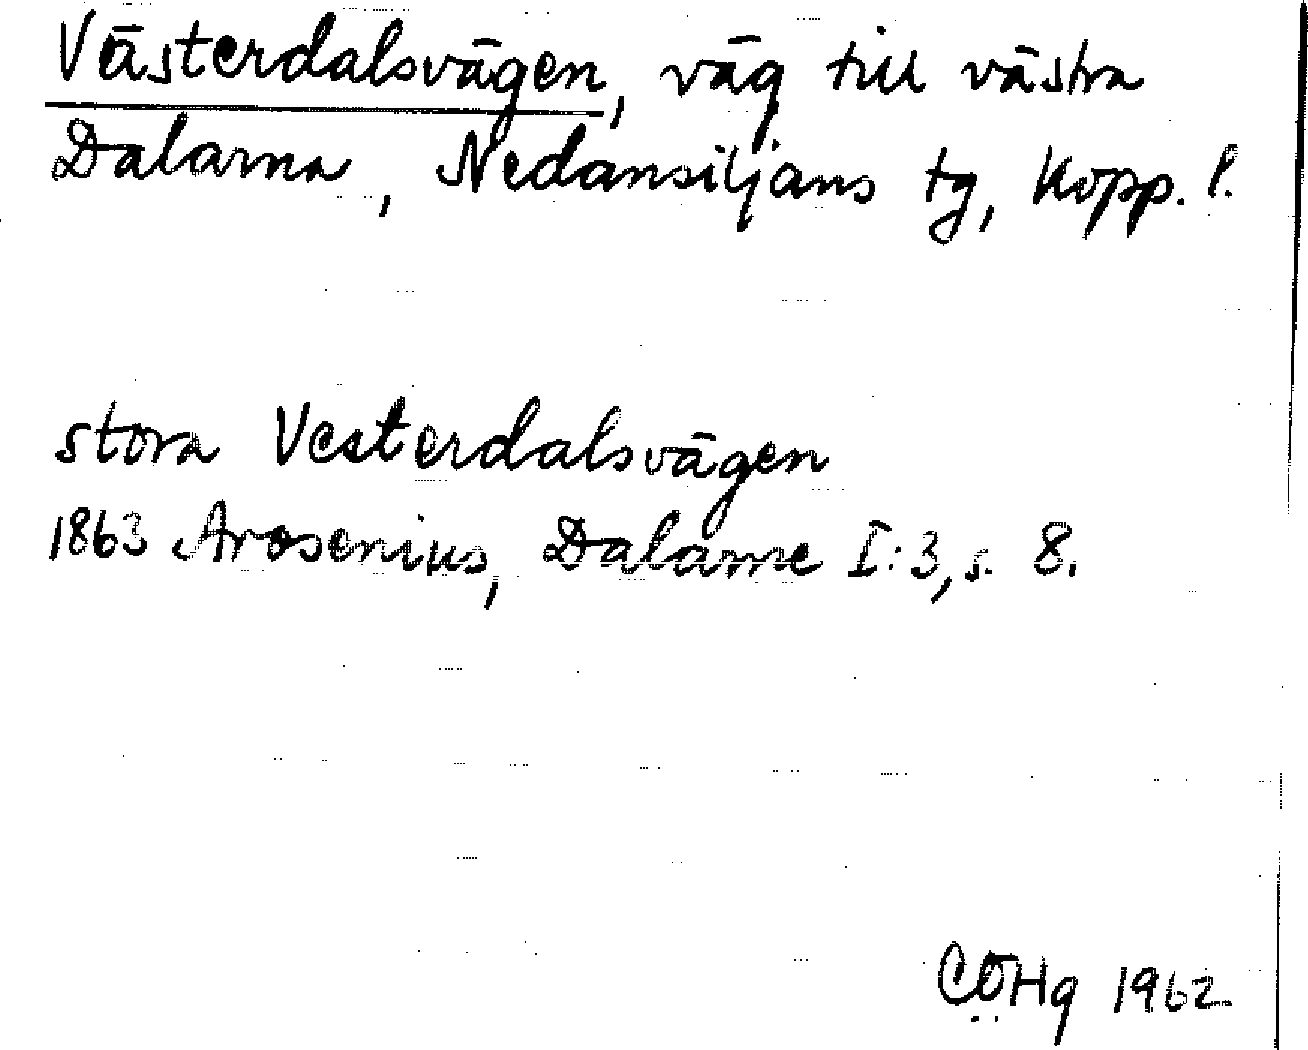 Västerdalsvägen, väg till västra
Dalarna, Nedansiljans tg, Kopp. l.
stora Vesterdalsvägen
1863 Arosenius, Dalarne I:3, s. 8.
CÖHg 1962